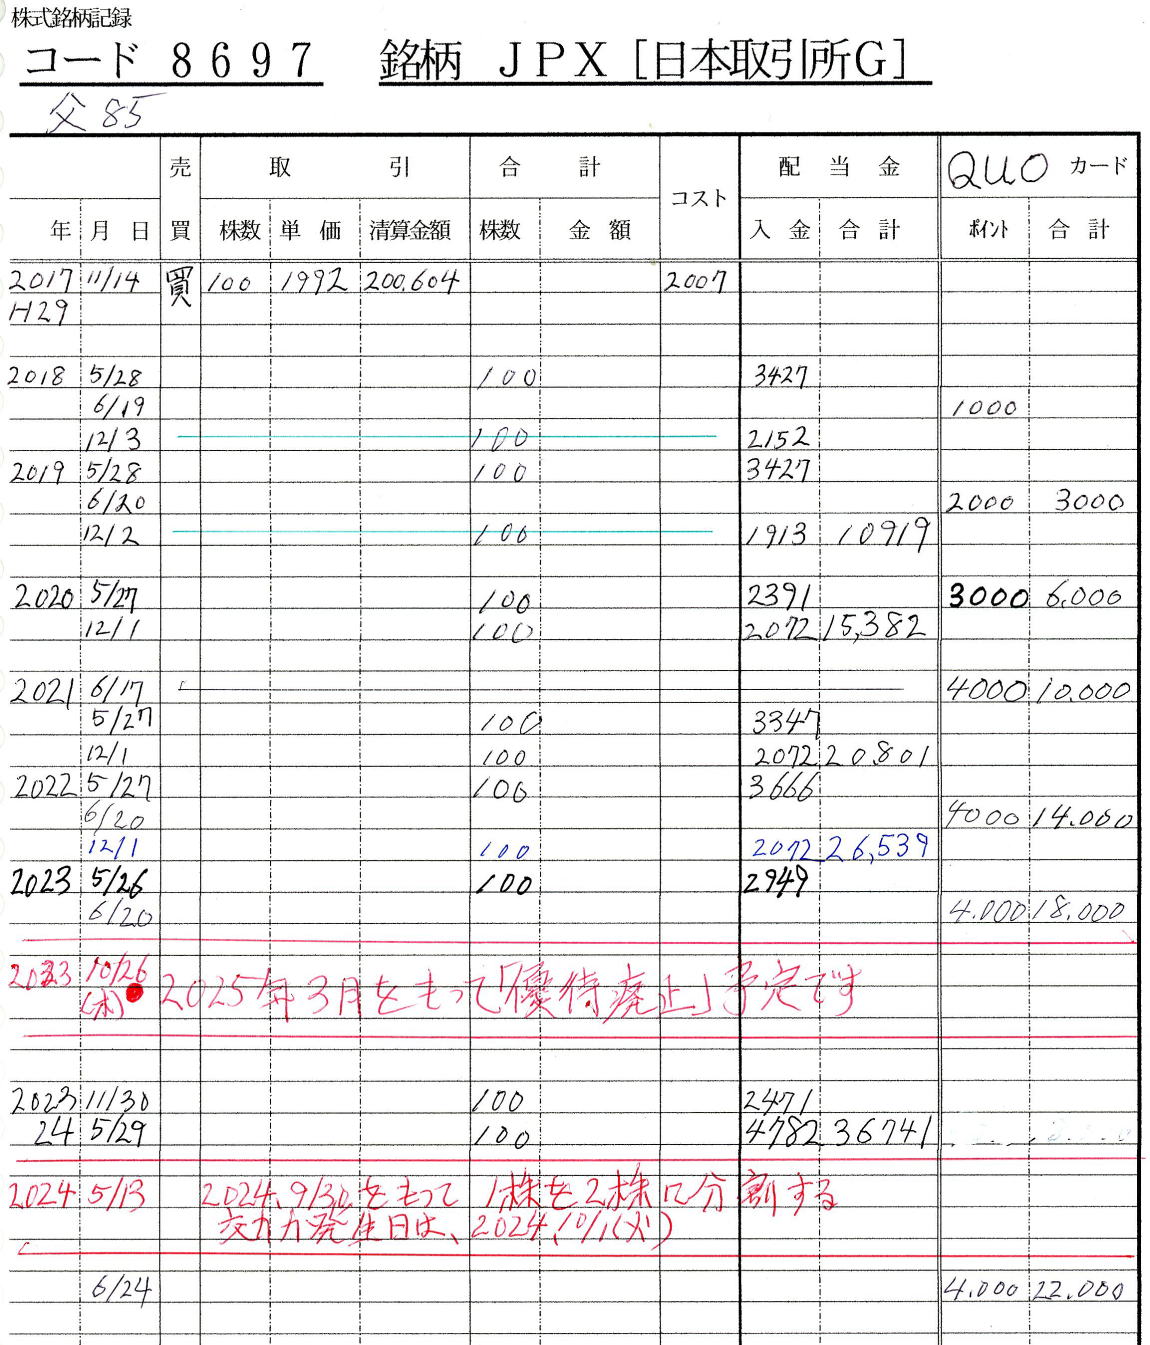 株式銘柄記録
コード 8697 銘柄 JPX [日本取引所G]
父 85
売 取 引 合 計 コスト 配 当 金 QUO カード
年 月 日 買 株数 単 価 清算金額 株数 金 額 入 金 合 計 ポイント 合 計
2017 11/14 買 100 1992 200,604 2007
H29
2018 5/28 100 3427
6/19 1000
12/3 100 2152
2019 5/28 100 3427
6/20 2000 3000
12/2 100 1913 10919
2020 5/27 100 2391 3000 6,000
12/1 100 2072 15,382
2021 6/17 4000 10,000
5/27 100 3347
12/1 100 2072 20801
2022 5/27 100 3666
6/20 4000 14,000
12/1 100 2072 26,539
2023 5/26 100 2949
6/20 4,000 18,000
2023 10/26 2025年3月をもって「優待廃止」予定です
(木)
2023 11/30 100 2471
24 5/29 100 4782 36741
2024 5/13 2024.9/30をもって 1株を2株に分割する
効力発生日は、2024.10/1(火)
6/24 4,000 22,000